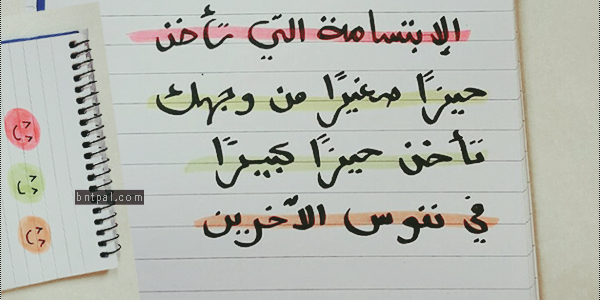 الإبتسامة التي تأخذ
حيزًا صغيرًا من وجهك
تأخذ حيزًا كبيرًا
في نفوس الآخرين
bntpal.com